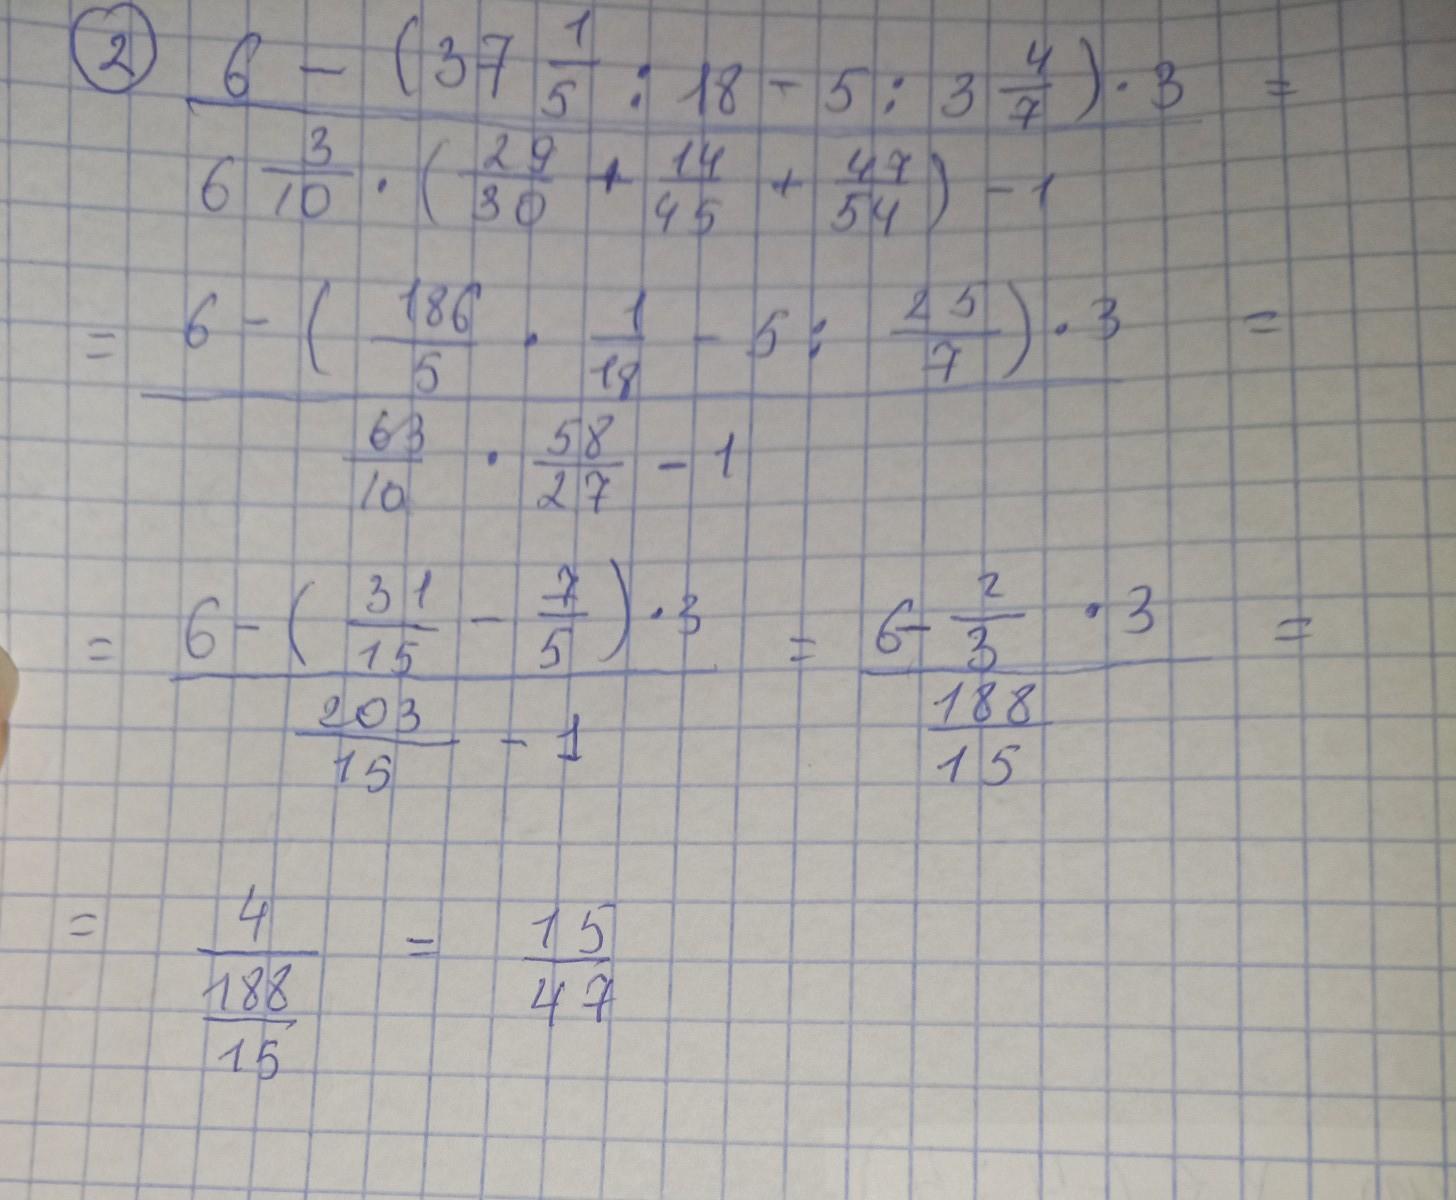 ② 6 - (37 1/5 : 18 - 5 : 3 4/7) · 3 =
6 3/10 · (29/30 + 14/45 + 47/54) - 1
= 6 - (186/5 · 1/18 - 5 : 25/7) · 3 =
63/10 · 58/27 - 1
= 6 - (31/15 - 7/5) · 3 = 6 - 2/3 · 3 =
203/15 - 1 188/15
= 4 = 15/47
188/15